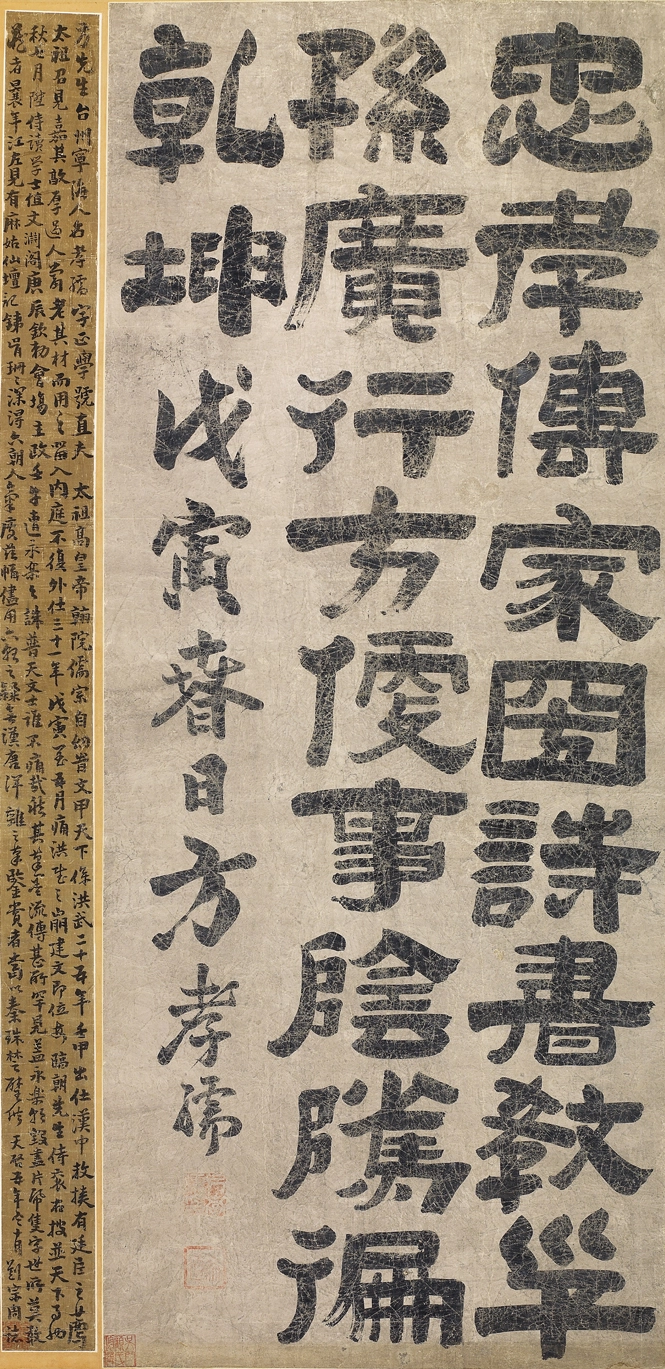 忠孝傳家國詩書教子
孫廣行方便事陰騭徧
乾坤戊寅春日方孝孺
方先生台州寧海人名孝孺字正學號直夫 太祖高皇帝翰院儒宗自幼昔文甲天下係洪武二十五年壬申出仕漢中教授有廷臣之上薦
太祖召見嘉其敦厚為人老其材而用之留入內庭不復外仕三十一年戊寅至五月痛洪武之崩建文即位臨朝先生侍右並天下事
秋七月陞侍讀學士值文淵閣庚辰欽勅會場主政壬午遭永樂之誅普天文士誰不痛哉然其墨流傳甚所罕見蓋永樂朝毀盡片紙隻字世所莫敢
藏者曩年江左見有麻姑仙壇記珊珊深得六朝人氣度茲幅儘用六朝之隸無漢唐洋雜之筆鑒賞者當以秦珠楚璧 天啟五年冬月劉宗周誌